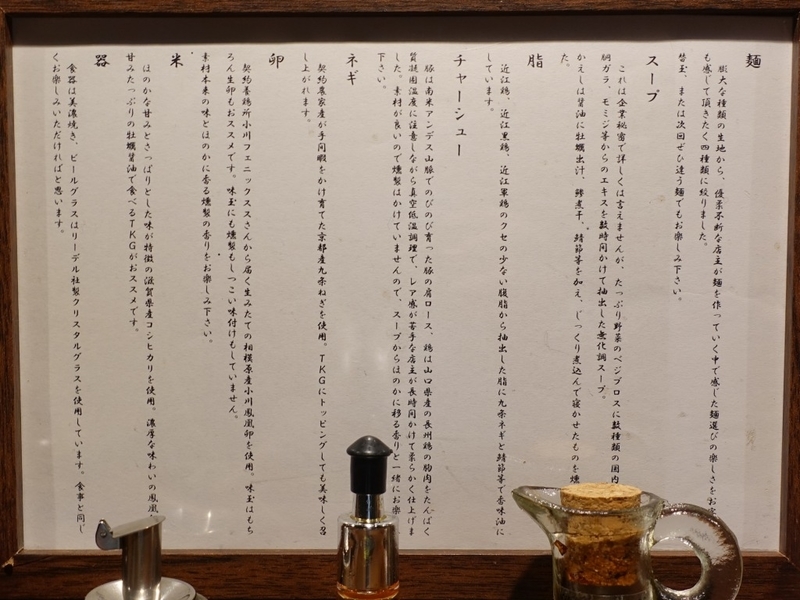 麺
膨大な種類の生地から、優柔不断な店主が麺を作っていく中で感じた麺選びの楽しさをお
も感じて頂きたく四種類に絞りました。
替玉、または次回ぜひ違う麺でもお楽しみ下さい。
スープ
これは企業秘密で詳しくは言えませんが、たっぷり野菜のベジブロスに数種類の国内
胴ガラ、モミジ等からのエキスを数時間かけて抽出した無化調スープ。
かえしは醤油に牡蠣出汁、鯵煮干、鯖節等を加え、じっくり煮込んで寝かせたものを
た。
脂
近江鶏、近江黒鶏、近江軍鶏のクセの少ない腹脂から抽出した脂に九条ネギと鯖節等で香味油に
しています。
チャーシュー
豚は南米アンデス山脈でのびのび育った豚の肩ロース、鶏は山口県産の長州鶏の胸肉をたんぱく
質凝固温度に注意しながら真空低温調理で、レア感が苦手な店主が長時間かけて柔らかく仕上げま
した。素材が良いので燻製はかけていませんので、スープからほのかに移る香りと一緒にお楽
下さい。
ネギ
契約農家産が手間暇をかけ育てた京都産九条ねぎを使用。TKGにトッピングしても美味しく召
し上がれます。
卵
契約養鶏所小川フェニックスさんから届く生みたての相模原産小川鳳凰卵を使用。味玉はもち
ろん生卵もおススメです。味玉にも燻製もしつこい味付けもしていません。
素材本来の味とほのかに香る燻製の香りをお楽しみ下さい。
米
ほのかな甘みとさっぱりとした味が特徴の滋賀県産コシヒカリを使用。濃厚な味わいの鳳凰
甘みたっぷりの牡蠣醤油で食べるTKGがおススメです。
器
食器は美濃焼き、ビールグラスはリーデル社製クリスタルグラスを使用しています。食事と同じ
くお楽しみいただければと思います。